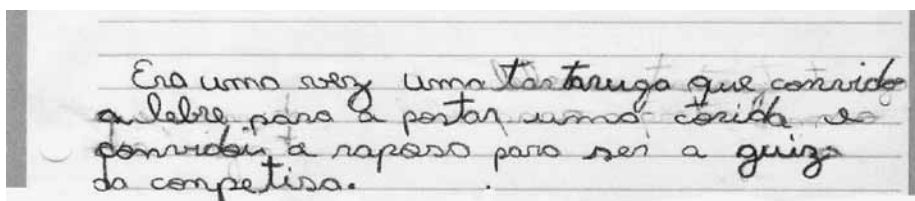 Era uma vez uma tartaruga que convido
a lebre para a postar uma corida e
convidou a raposo para sei a guiz
da conpetisa.